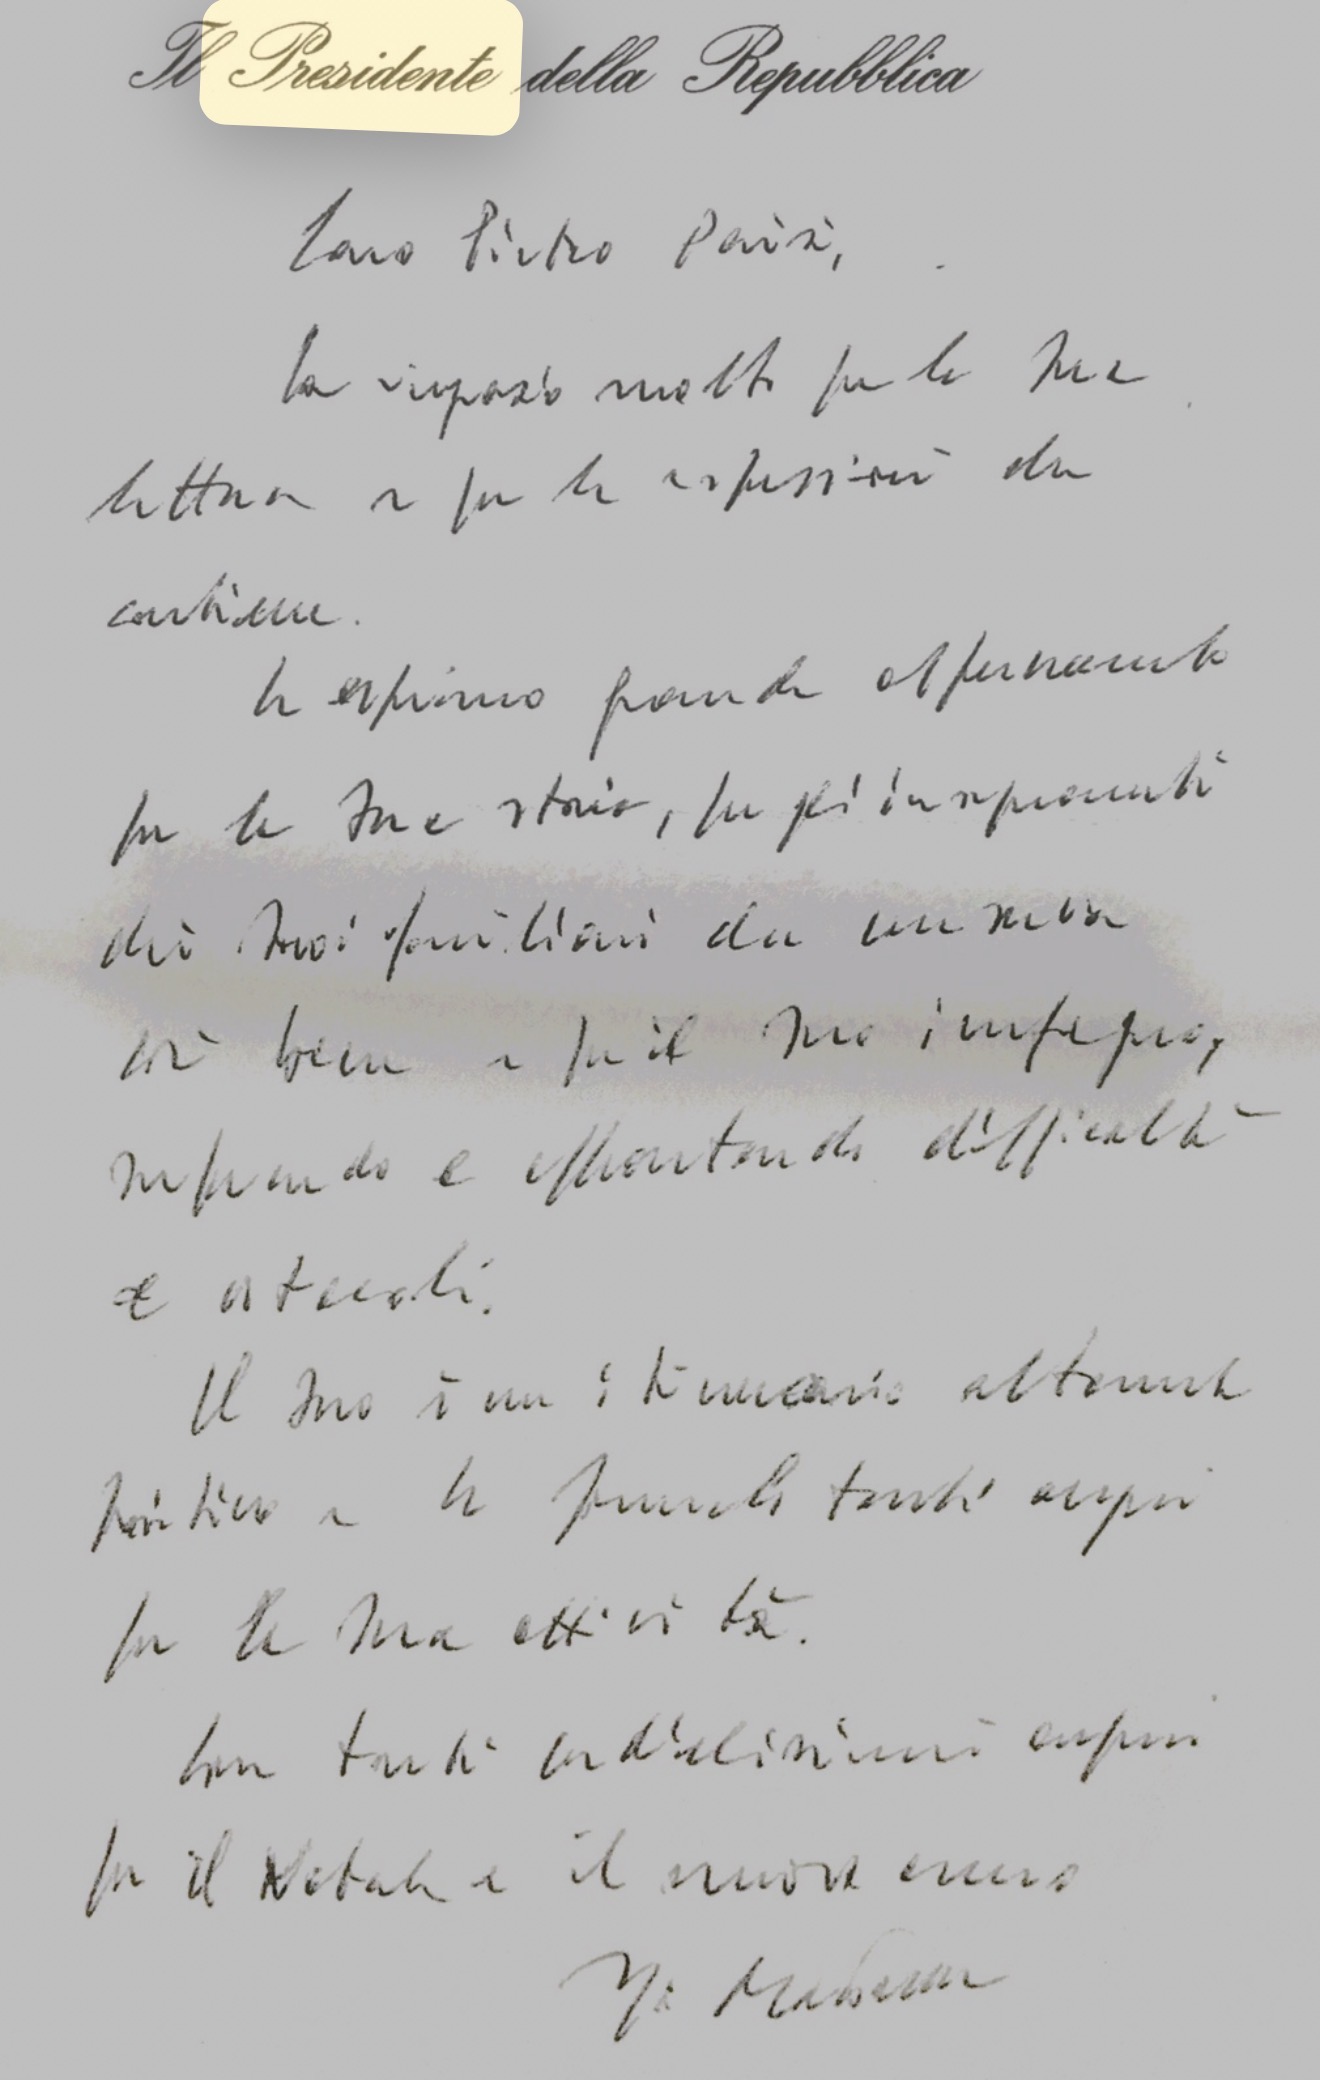 Il Presidente della Repubblica
Caro Pietro Parisi,
La ringrazio molto per la Sua
lettera e per le espressioni che
contiene.
Le esprimo grande apprezzamento
per la Sua storia, per gli insegnamenti
dei Suoi familiari che conserva
così bene e per il Suo impegno,
superando e affrontando difficoltà
e ostacoli.
Il Suo è un itinerario altamente
positivo e Le formulo tanti auguri
per la Sua attività.
Con tanti cordialissimi auguri
per il Natale e il nuovo anno
Mattarella